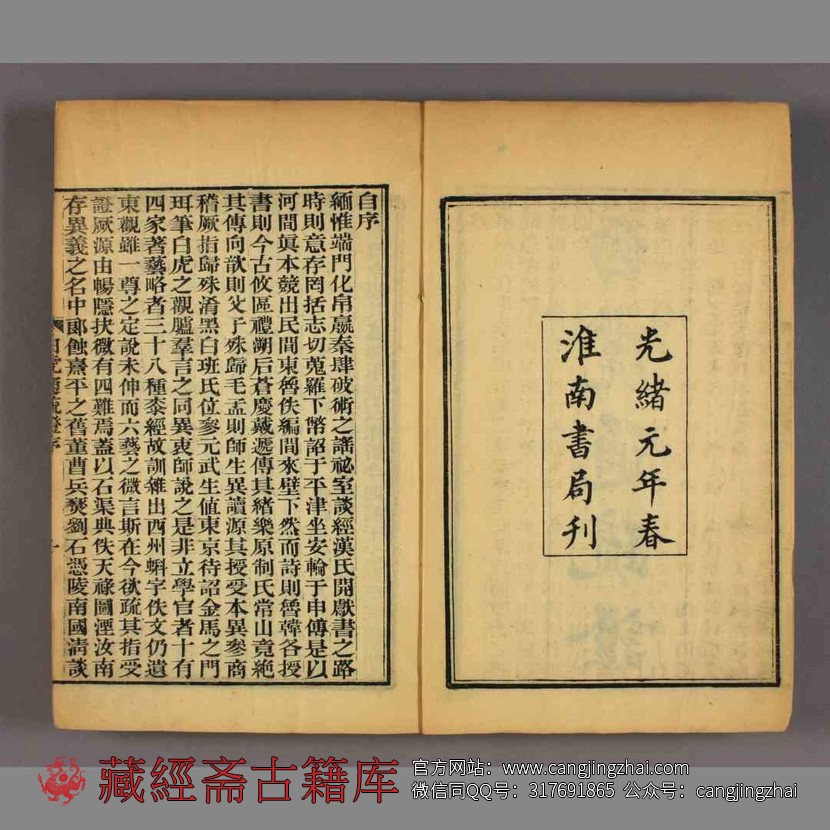 光緒元年春
淮南書局刊
自序
緬惟端門化帛嬴秦肆破術之謠祕室談經漢氏開獻書之路
時則意存罔括志切蒐羅下幣詔于平津坐安輪于申傅是以
河間眞本競出民間東魯佚編間來壁下然而詩則魯韓各授
書則今古攸區禮溯后蒼慶戴遞傳其緒樂原制氏常山竟絶
其傳向歆則父子殊歸毛孟則師生異讀源其授受本異參商
稽厥指歸殊淆黑白班氏位參元武生値東京待詔金馬之門
珥筆白虎之觀臚羣言之同異衷師說之是非立學官者十有
四家著藝略者三十八種泰經故訓雜出西州蝌字佚文仍遺
東觀雖一尊之定說未伸而六藝之微言斯在今欲疏其指受
證厥源由暢隱抉微有四難焉蓋以石渠典佚天祿圖湮汝南
存異義之名中郎蝕熹平之舊董曹兵燹劉石憑陵南國淸談
白虎通疏證序
一
藏經斋古籍库
官方网站：www.cangjingzhai.com
微信同QQ号：317691865 公众号：cangjingzhai